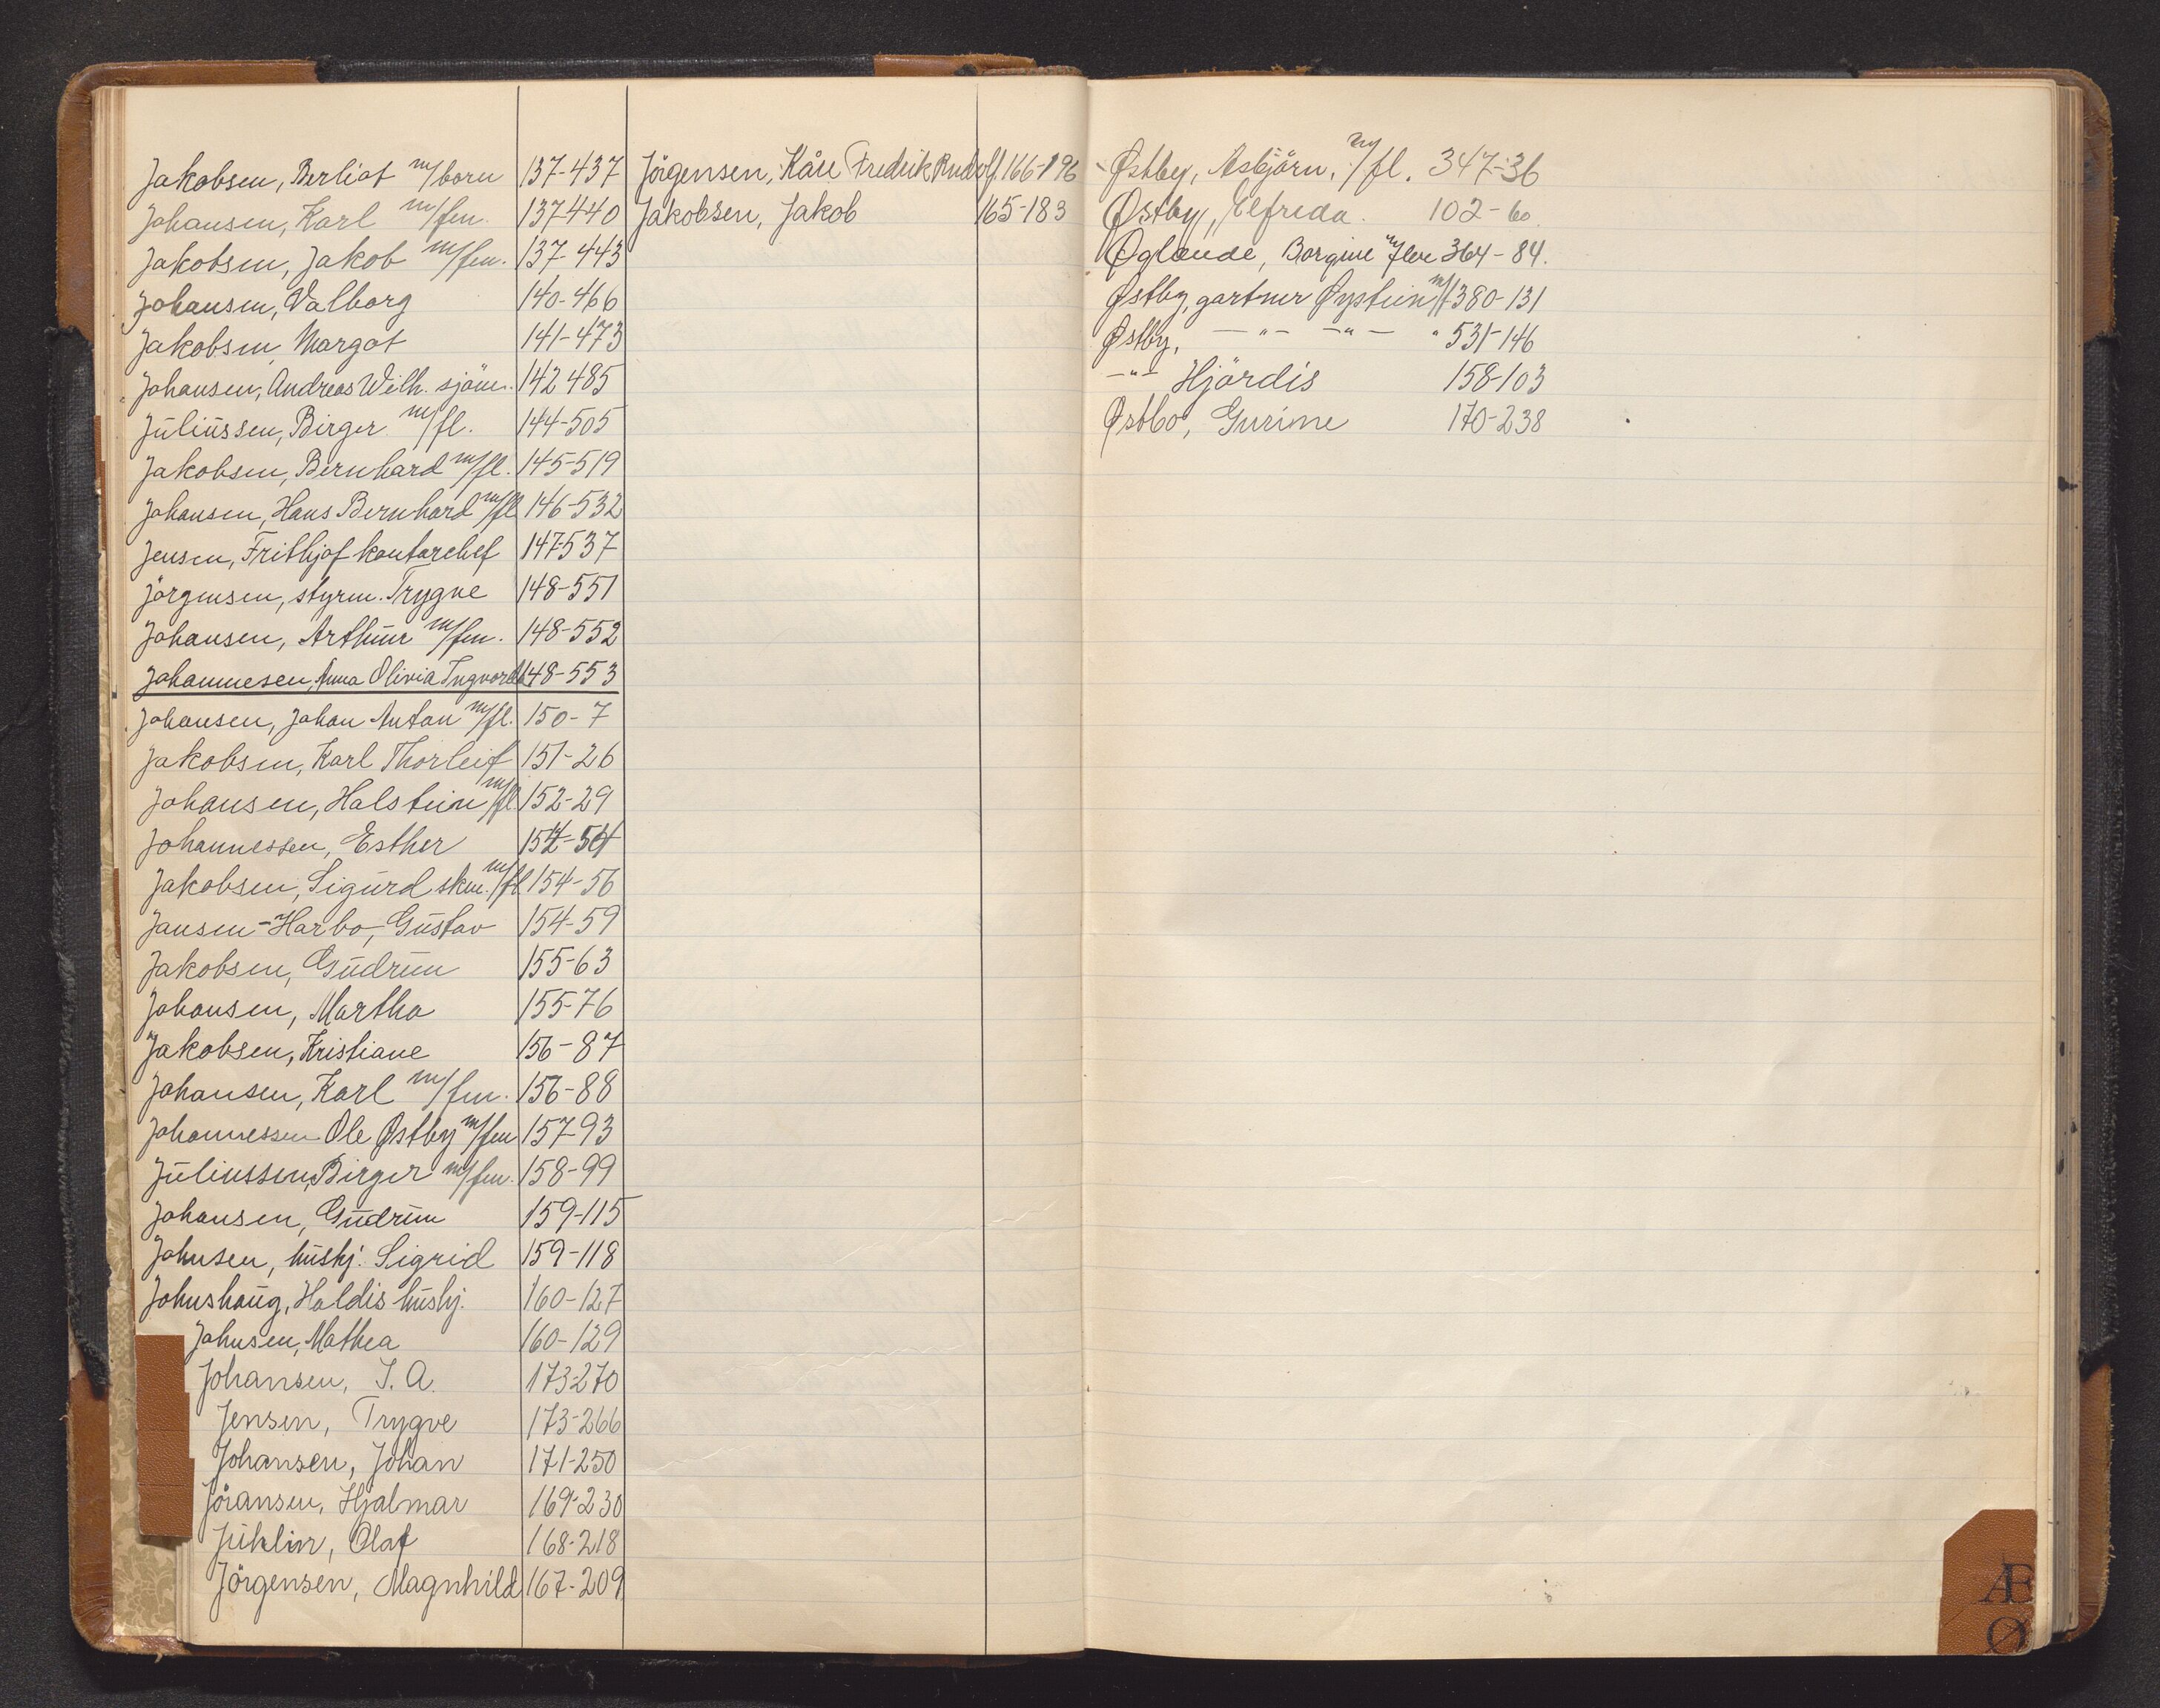 Jakobsen, Berliot m/born 137-437
Johansen, Karl m/fm. 137-440
Jakobsen, Jakob m/fm. 137-443
Johansen, Valborg 140-466
Jakobsen, Margot 141-473
Johansen, Andreas Wilh. sjöm. 142 485
Juliussen, Birger m/fl. 144-505
Jakobsen, Bernhard m/fl. 145-519
Johansen, Hans Bernhard m/fl 146-532
Jensen, Frithjof kontorchef 147-537
Jörgensen, styrm. Trygve 148-551
Johansen, Arthur m/fm. 148-552
Johannesen, Anna Olivia Ingvarda 148-553
Johansen, Johan Anton m/fl. 150-7
Jakobsen, Karl Thorleif 151-26
Johansen, Halstein m/fl 152-29
Johannessen, Esther
Jakobsen, Sigurd skm. m/fl 154-56
Jansen-Harbo, Gustav 154-59
Jakobsen, Gudrun 155-63
Johansen, Martha 155-76
Jakobsen, Kristiane 156-87
Johansen, Karl m/fm. 156-88
Johannessen Ole Østby m/fm 157-93
Juliussen, Birger m/fm. 158-99
Johansen, Gudrun 159-115
Johnsen, hushj. Sigrid 159-118
Johnshaug, Haldis hushj. 160-127
Johnsen, Mathea 160-129
Johansen, J. A. 173-270
Jensen, Trygve 173-266
Johansen, Johan 171-250
Jöransen, Hjalmar 169-230
Juhlin, Olaf 168-218
Jörgensen, Magnhild 167-209
Jörgensen, Kåre Fredrik Rudolf. 166-196
Jakobsen, Jakob 165-183
Østby, Asbjörn, m/fl. 347-36
Østby, Elfreda. 102-60
Øglænde, Borgine m/flere 364-84.
Østby, gartner Øystein m/f 380-131
Østby, -"- -"- " 531-146
-"- Hjördis 158-103
Østbø, Gurine 170-238
Æ
Ø